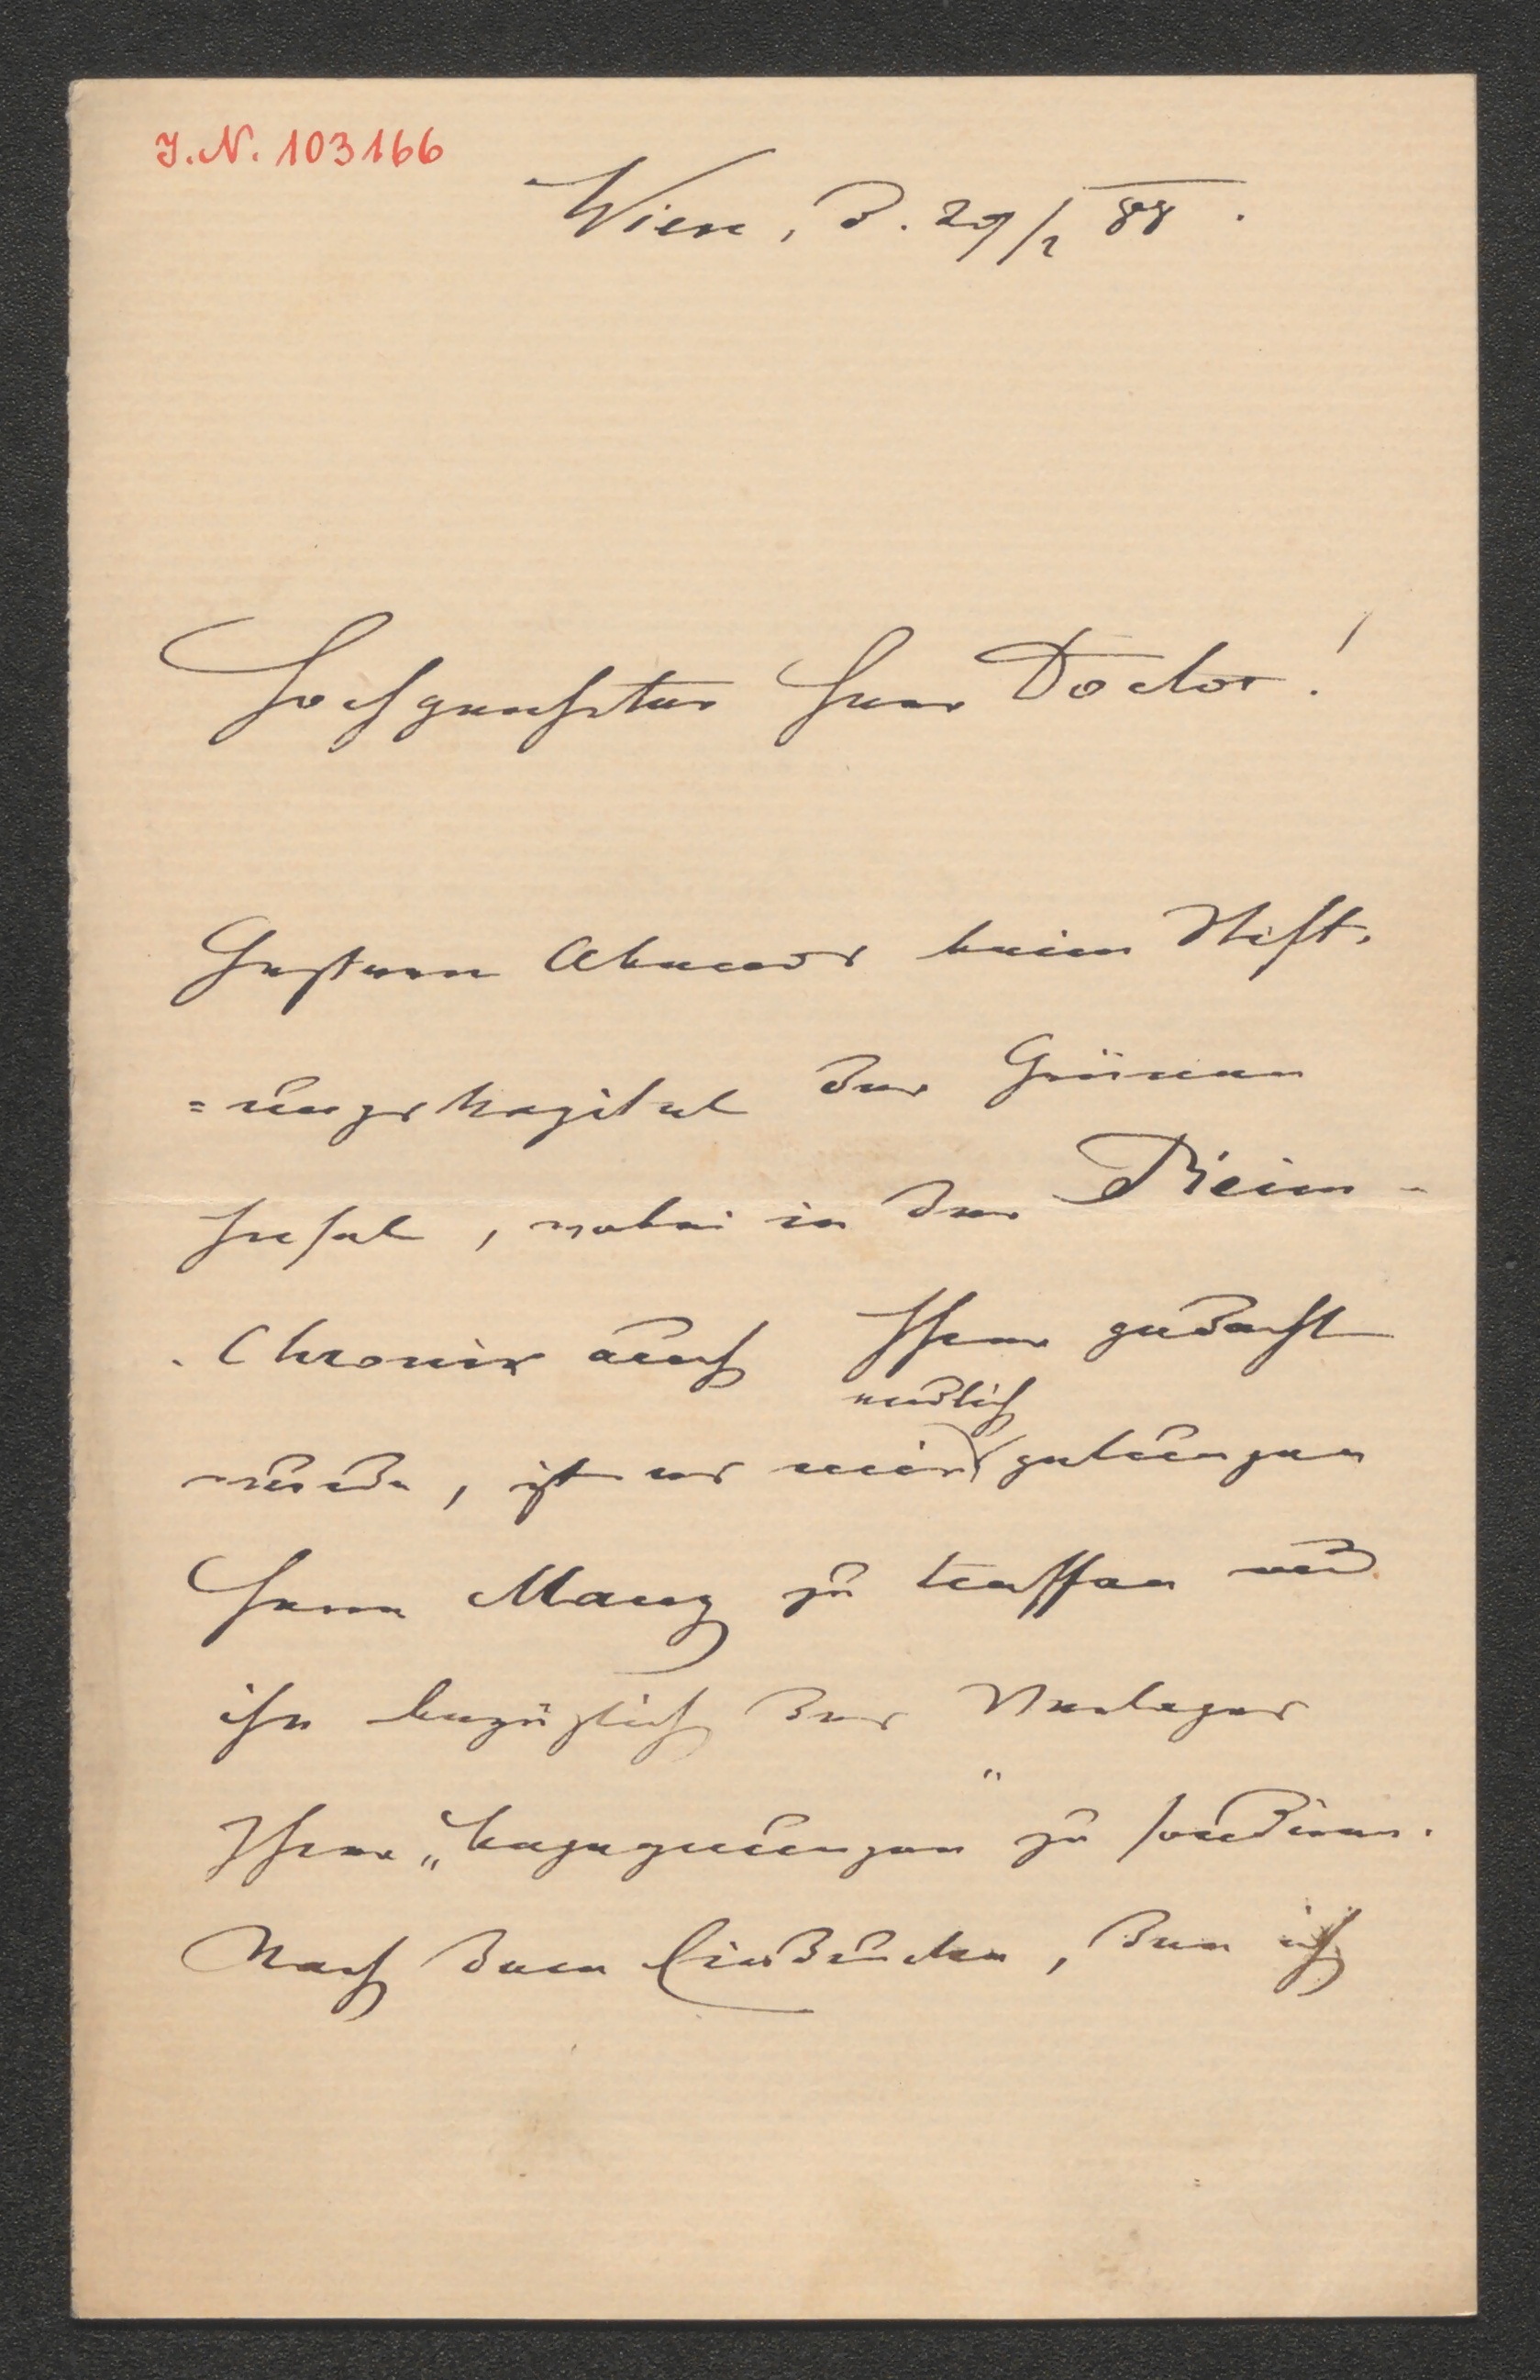 J.N. 103166
Wien, d. 29/2 88.
Hochgeehrter Herr Doctor!
Gestern Abends beim Stift-
=ungskapitel der Grünen
Insel, wobei in der Reim-
-Chronik auch Ihrer gedacht
endlich
wurde, ist es mir gelungen
Herrn Manz zu treffen und
ihn bezüglich des Verlages
Ihrer „Begegnungen“ zu sondiren.
Nach dem Eindrucke, den ich